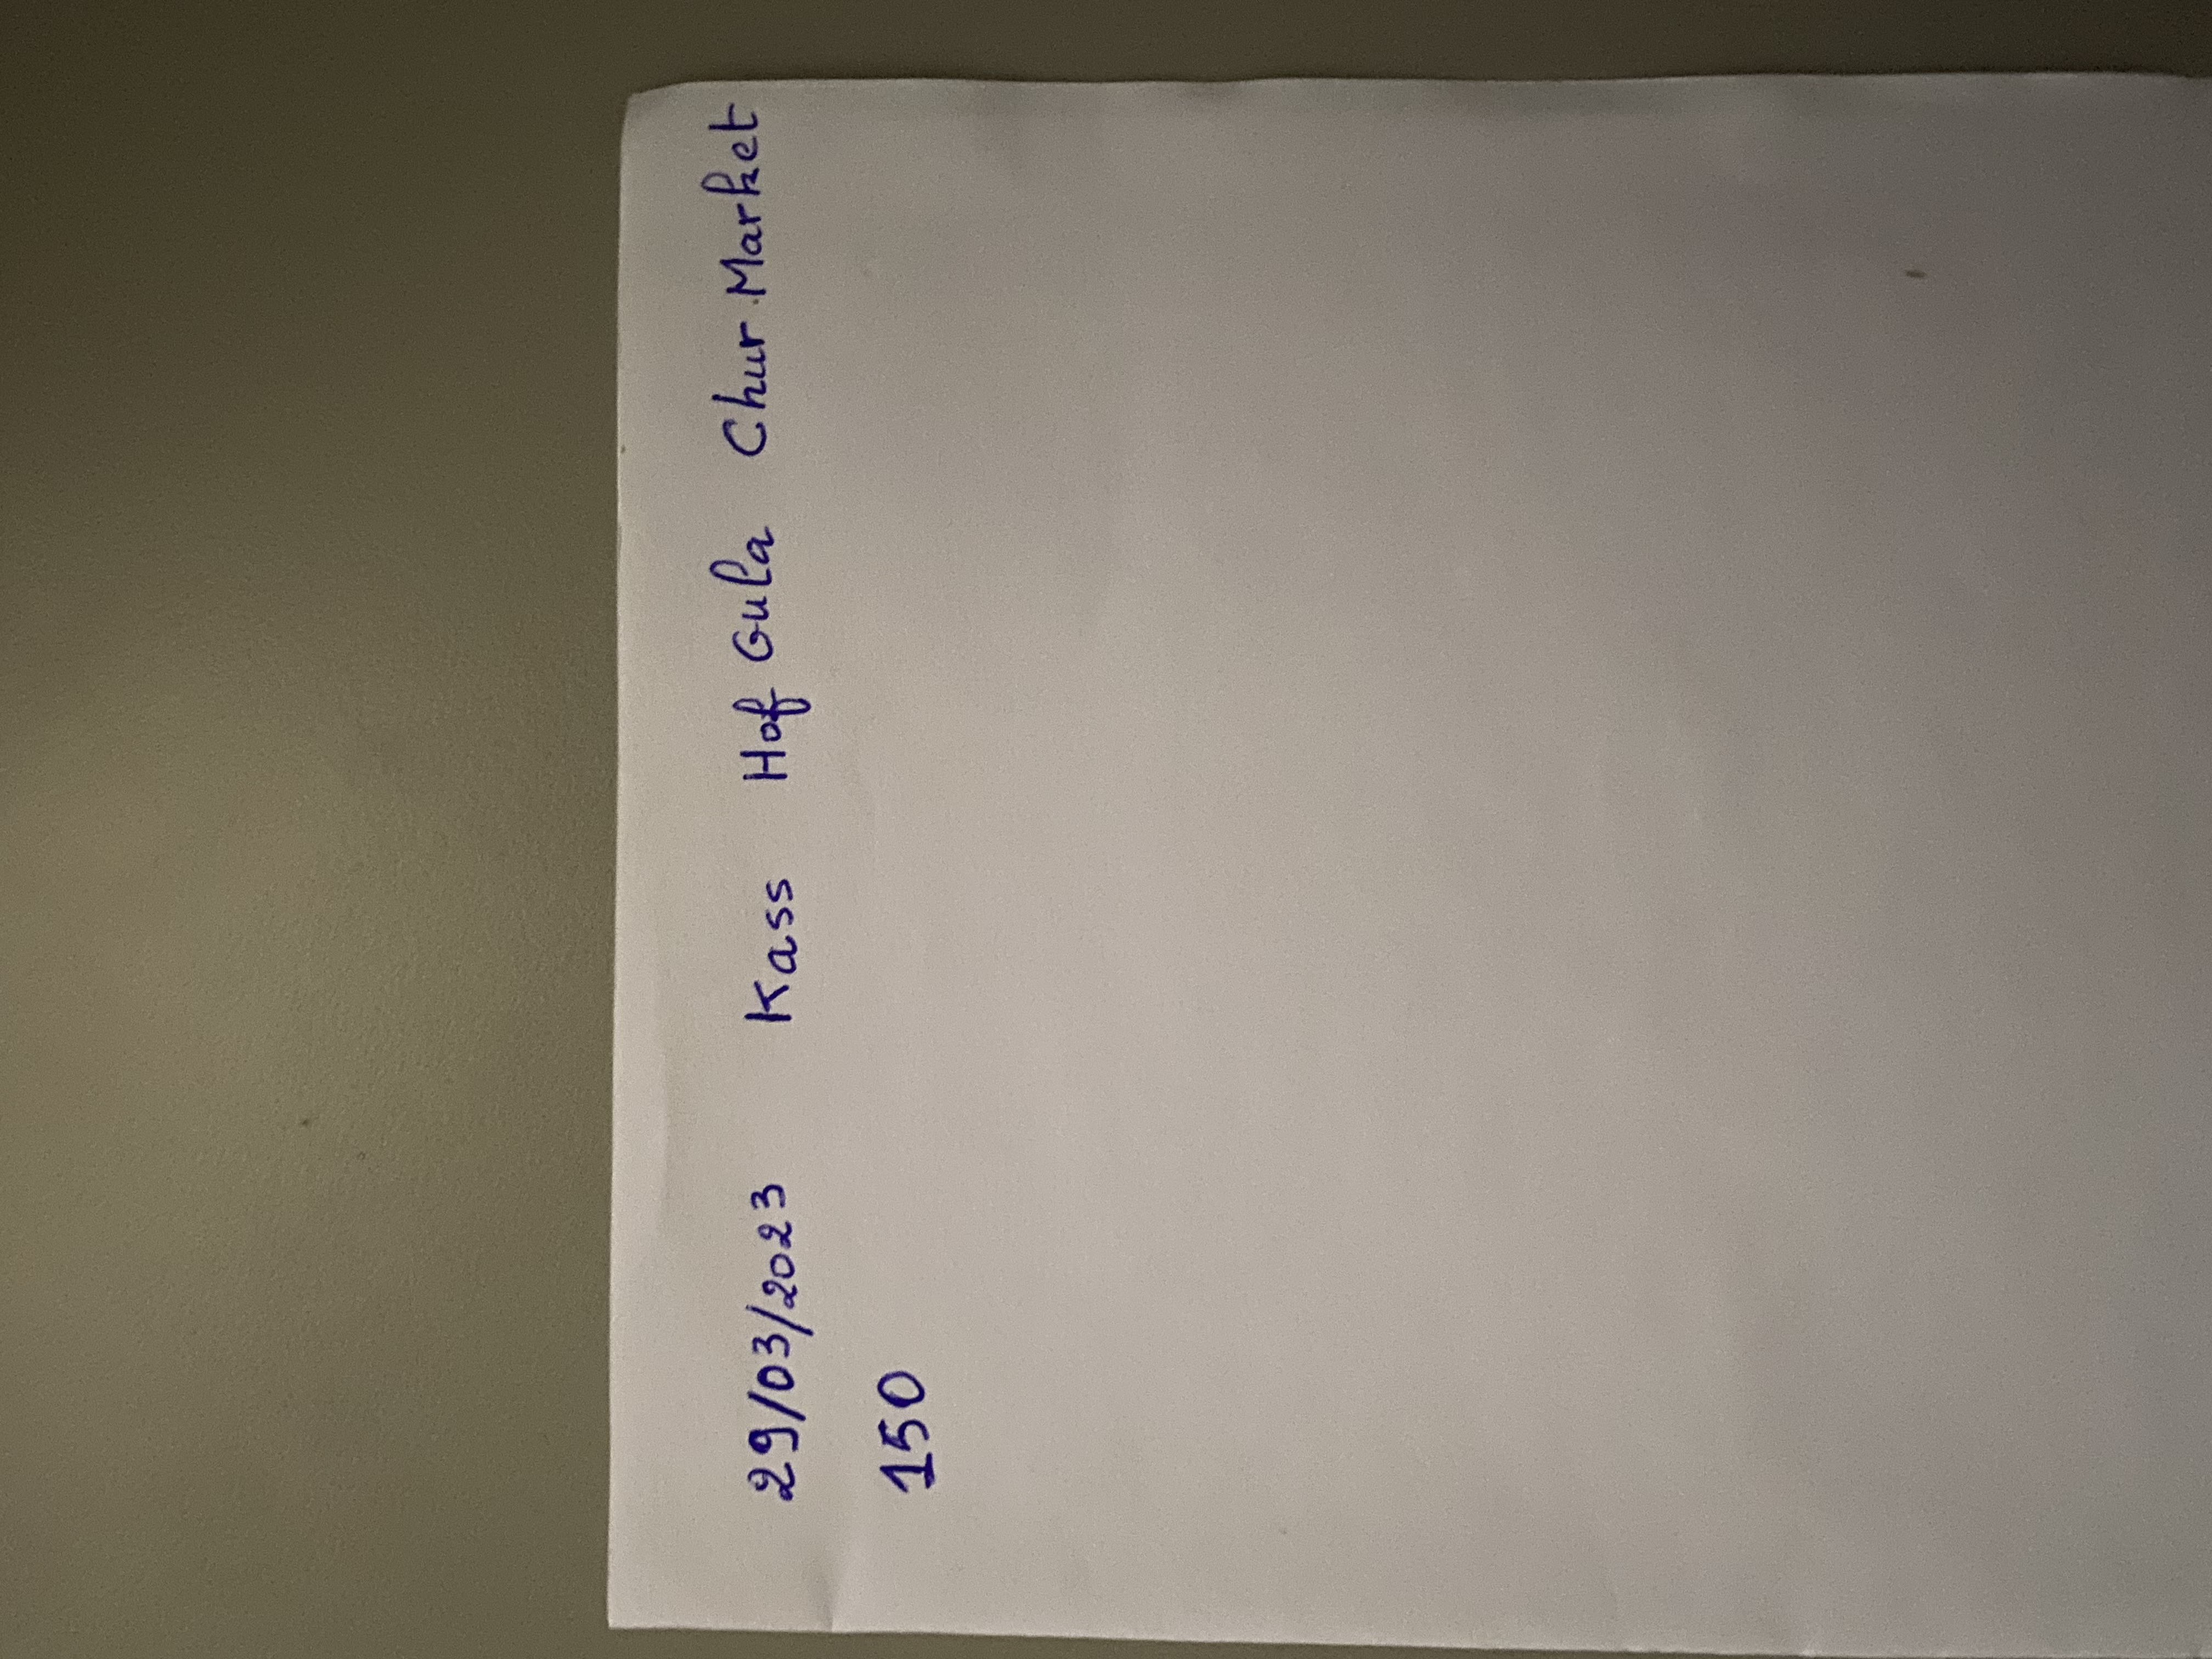 29/03/2023 Kass Hof Gula Chur Market
150